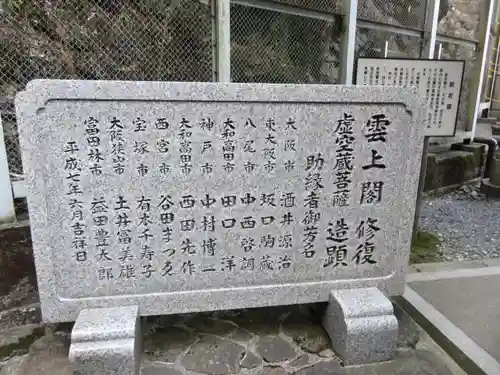 雲上閣 修復
虚空蔵菩薩 造顕
助縁者御芳名
大阪市 酒井源治
東大阪市 坂口駒蔵
八尾市 中西啓詞
大和高田市 田口洋
神戸市 中村博一
大和高田市 西田先作
西宮市 谷田まつゑ
宝塚市 有本千寿子
大阪狭山市 土井冨雄
富田林市 益田豊太郎
平成七年六月吉祥日